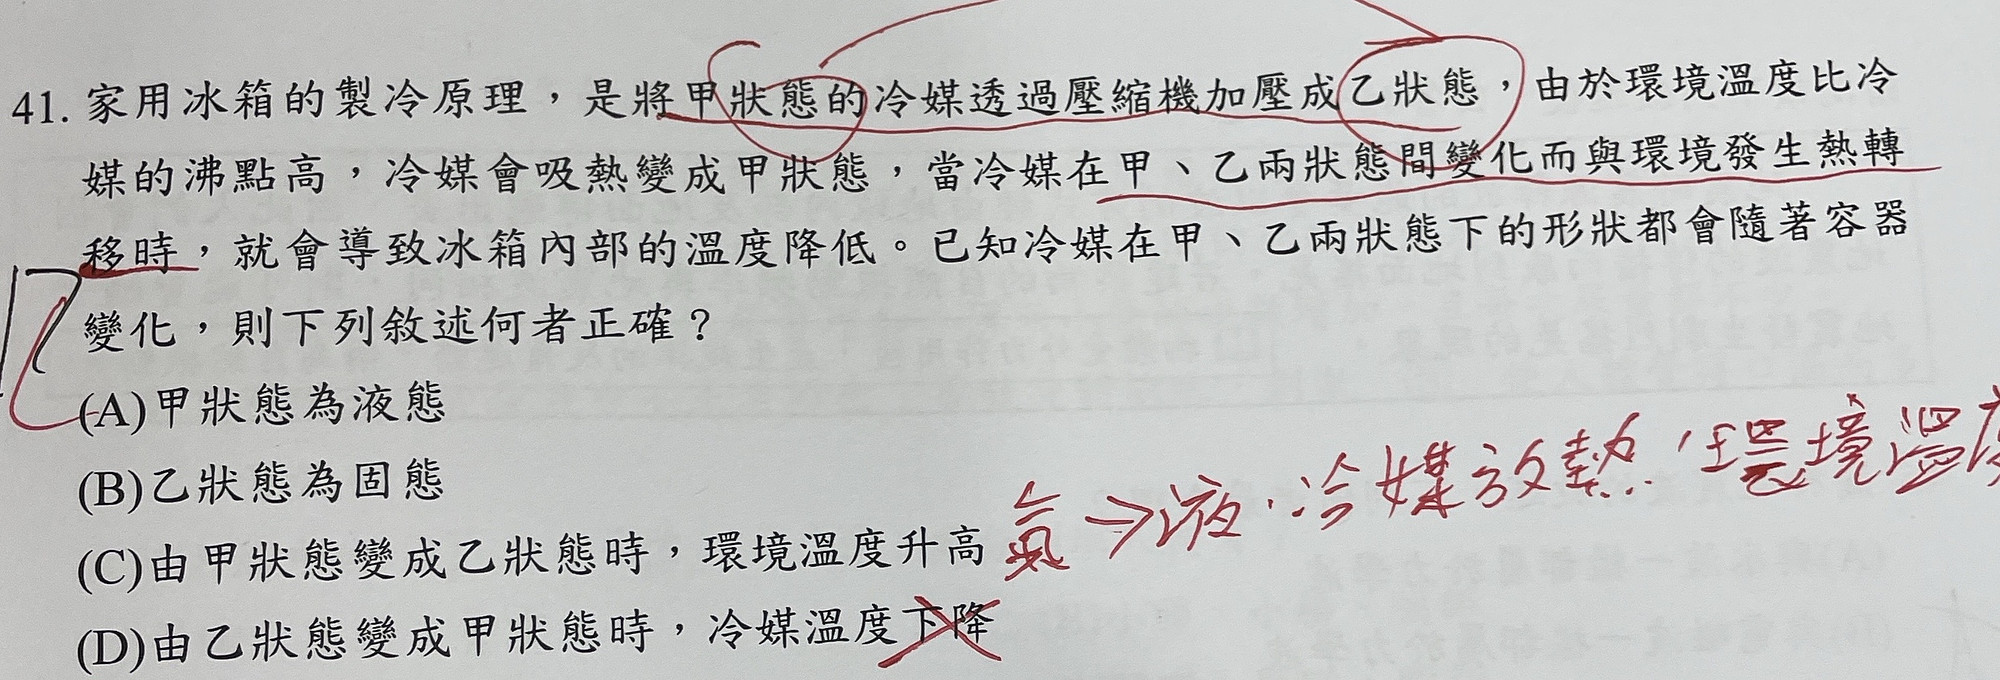 41. 家用冰箱的製冷原理，是將甲狀態的冷媒透過壓縮機加壓成乙狀態，由於環境溫度比冷
媒的沸點高，冷媒會吸熱變成甲狀態，當冷媒在甲、乙兩狀態間變化而與環境發生熱轉
移時，就會導致冰箱內部的溫度降低。已知冷媒在甲、乙兩狀態下的形狀都會隨著容器
變化，則下列敘述何者正確？
(A)甲狀態為液態
(B)乙狀態為固態
(C)由甲狀態變成乙狀態時，環境溫度升高
氣→液，冷媒放熱，環境溫
(D)由乙狀態變成甲狀態時，冷媒溫度下降